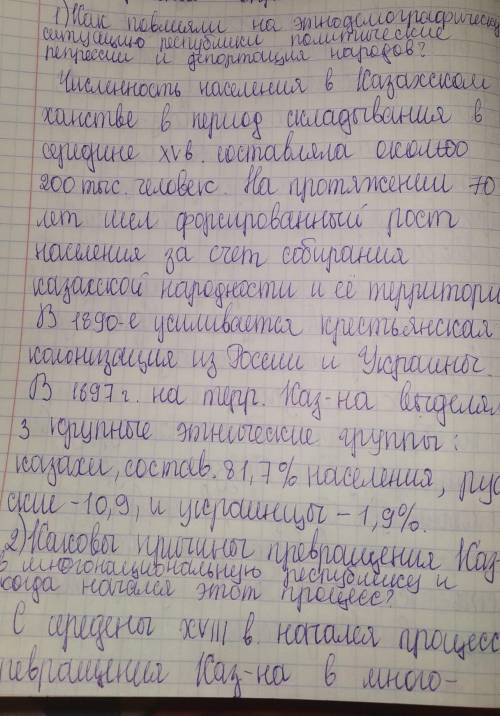 1) Как повлияли на этнодемографическую
ситуацию республики политические
репрессии и депортация народов?
Численность населения в Казахском
ханстве в период складывания в
середине XV в. составляла около
200 тыс. человек. На протяжении 70
лет шел форсированный рост
населения за счет собирания
казахской народности и её территори
В 1890-е усиливается крестьянская
колонизация из России и Украины.
В 1897 г. на терр. Каз-на выделял
3 крупные этнические группы:
казахи, состав. 81,7% населения, рус
ские - 10,9, и украинцы - 1,9%.
2) Каковы причины превращения Каз-
в многонациональную республику и
когда начался этот процесс?
С середены XVIII в. начался процесс
превращения Каз-на в много-